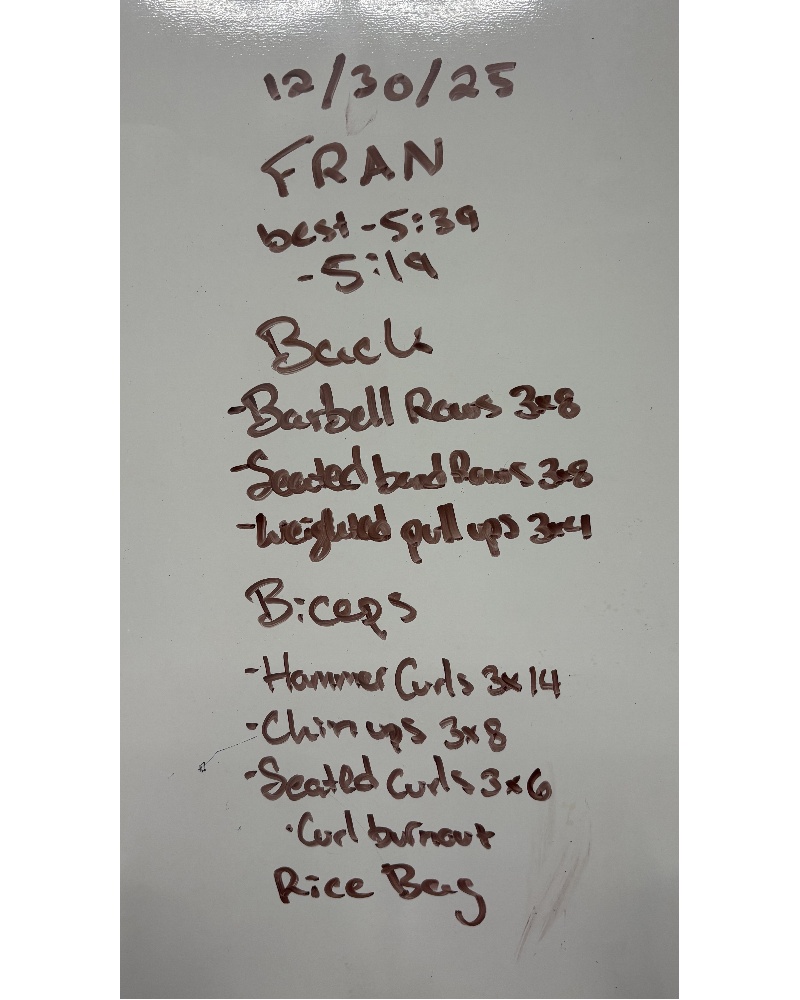 12/30/25
FRAN
best - 5:39
- 5:19
Back
- Barbell Rows 3x8
- Seated band Rows 3x8
- Weighted pull ups 3x4
Biceps
- Hammer Curls 3x14
- Chin ups 3x8
- Seated Curls 3x6
· Curl burnout
Rice Bag